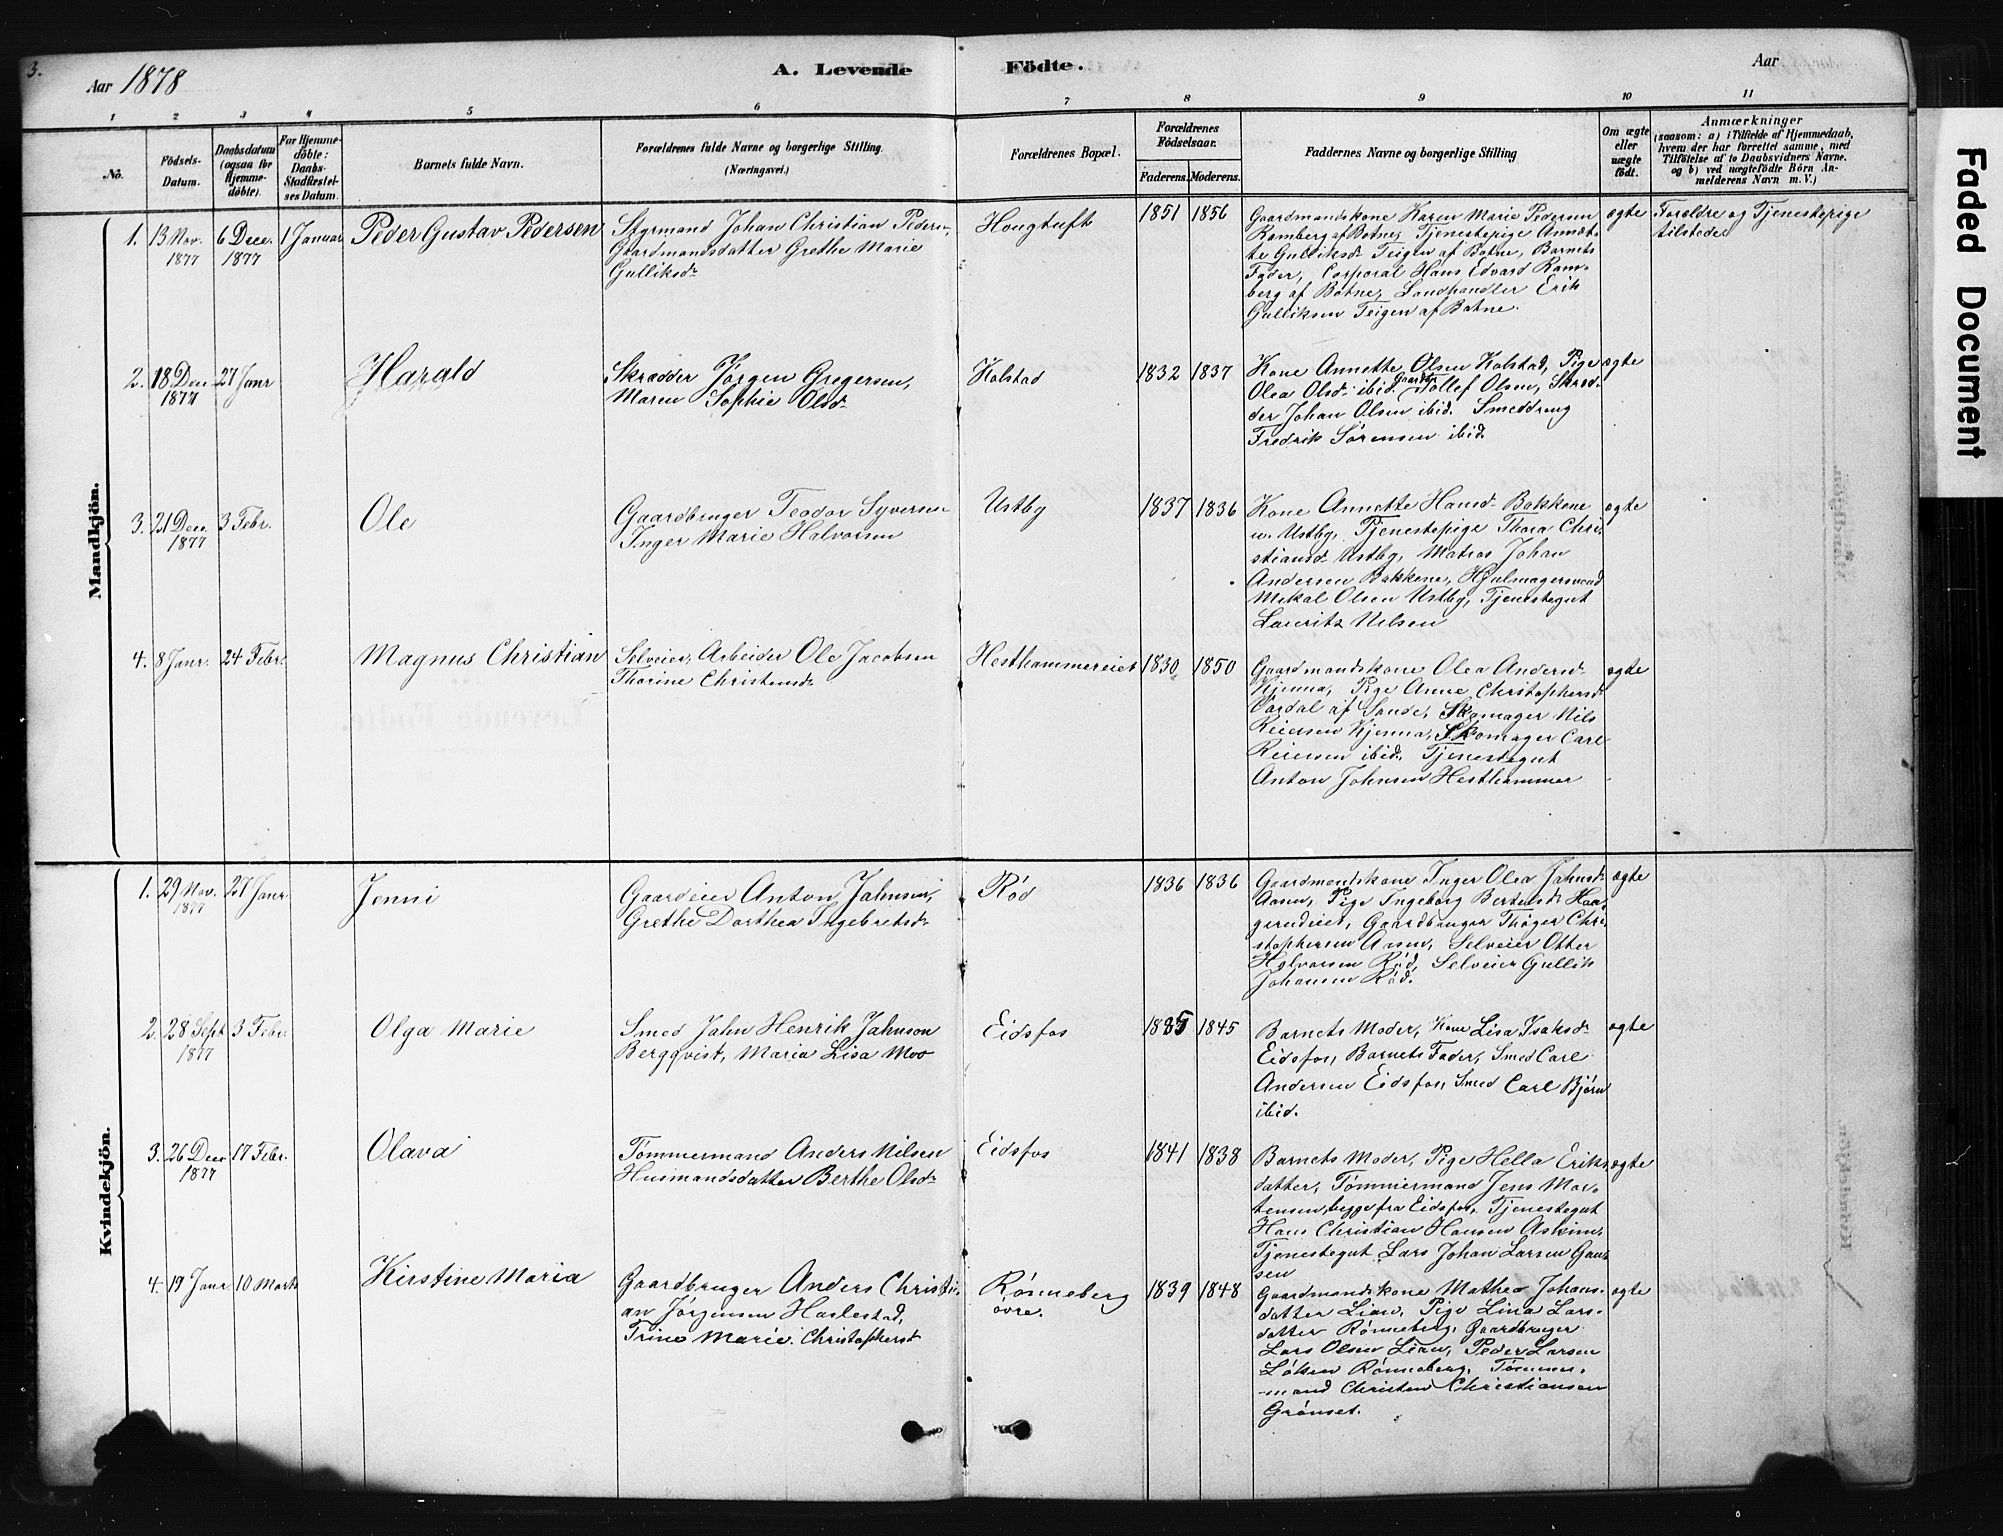 3.
Aar 1878
A. Levende Födte.
Aar
1 2 3 4 5 6 7 8 9 10 11
No.
Födsels-Datum.
Daabsdatum (ogsaa for Hjemme-döbte).
For Hjemme-döbte: Daabs-Stadfæstel-ses Datum.
Barnets fulde Navn.
Forældrenes fulde Navne og borgerlige Stilling (Næringsvei.)
Forældrenes Bopæl.
Forældrenes Födselsaar.
Faderens. Moderens.
Faddernes Navne og borgerlige Stilling
Om ægte eller uægte födt.
Anmærkninger
(saasom: a) i Tilfælde af Hjemmedaab,
hvem der har forrettet samme, med
Tilföielse af to Daabsvidners Navne.
og b) ved uægtefödte Börn An-
melderens Navn m. V.)
Mandkjön.
1. 13 Nov. 1877
6 Dece. 1877
1 Januar
Peder Gustav Pedersen
Styrmand Johan Christian Peders.
Gaardmandsdatter Grethe Marie
Gulliksdr
Hougtuft
1851 1856
Gaardmandskone Karen Marie Pedersen
Ramberg af Botne, Tjenestepige Annæt-
te Gulliksdr Teigen af Botne, Barnets
Fader, Corporal Hans Edvard Ram-
berg af Botne, Landhandler Erik
Gulliksen Teigen af Botne.
ægte
Forældre og Tjenestepige
tilstede.
2. 18 Dec 1877
27 Janr
Harald
Skrædder Jørgen Gregersen,
Maren Sophie Olsdr
Kolstad
1832 1837
Kone Annette Olsen Kolstad, Pige
Olea Olsdr ibid. Gaardbr Tollef Olsen, Skræd-
der Johan Olsen ibid. Smeddreng
Fredrik Sørensen ibid.
ægte
3. 21 Dec 1877
3 Febr.
Ole
Gaardbruger Teodor Syversen
Inger Marie Halvorsen
Ustby
1837 1836
Kone Annette Hansdr Bakkene
u. Ustby, Tjenestepige Thora Chri-
stiansdr Ustby, Matros Johan
Andersen Bakkene, Hjulmagersvend
Mikal Olsen Ustby, Tjenestegut
Lauritz Nilsen
ægte
4. 8 Janr.
24 Febr.
Magnus Christian
Selveier, Arbeider Ole Jacobsen
Thorine Christensdr
Hesthammereiet
1830 1850
Gaardmandskone Olea Andersdr
Kjenna, Pige Anne Christophersdr
Vardal af Sande, Skomager Nils
Reiersen Kjenna, Skomager Carl
Reiersen ibid. Tjenestegut
Anton Johnsen Hesthammer
ægte
Kvindekjön.
1. 29 Nov. 1877
27 Janr
Jenni
Gaardeier Anton Jahnsen,
Grethe Dorthea Ingebretsdr
Rød
1836 1836
Gaardmandskone Inger Olea Jahnsdr
Aasen, Pige Ingeborg Berthesdr Haa-
gerudeiet, Gaardbruger Thøger Chri-
stophersen Aasen, Selveier Otter
Halvorsen Rød, Selveier Gullik
Johansen Rød.
ægte
2. 28 Sept 1877
3 Febr.
Olga Marie
Smed Jahn Henrik Jahnson
Bergqvist, Maria Lisa Moo
Eidsfos
1835 1845
Barnets Moder, Kone Lisa Isaksdr
Eidsfos, Barnets Fader, Smed Carl
Andersen Eidsfos, Smed Carl Bjørn
ibid.
ægte
3. 26 Dec 1877
17 Febr.
Olava
Tømmermand Anders Nilsen
Husmandsdatter Berthe Olsdr
Eidsfos
1841 1838
Barnets Moder, Pige Hella Eriks-
datter, Tømmermand Jens Mor-
tensen, begge fra Eidsfos, Tjenestegut
Hans Christian Hansen Askim,
Tjenestegut Lars Johan Larsen Gun-
sen
ægte
4. 19 Janr
10 Marts
Kirstine Maria
Gaardbruger Anders Christi-
an Jørgensen Haslestad,
Trine Marie Christophersdr
Rønneberg
øvre.
1839 1848
Gaardmandskone Mathea Johans-
datter Lian, Pige Lina Lars-
datter Rønneberg, Gaardbruger
Lars Olsen Lian, Peder Larsen
Løken Rønneberg, Tømmer-
mand Christen Christiansen
Grønset.
ægte
Faded Document